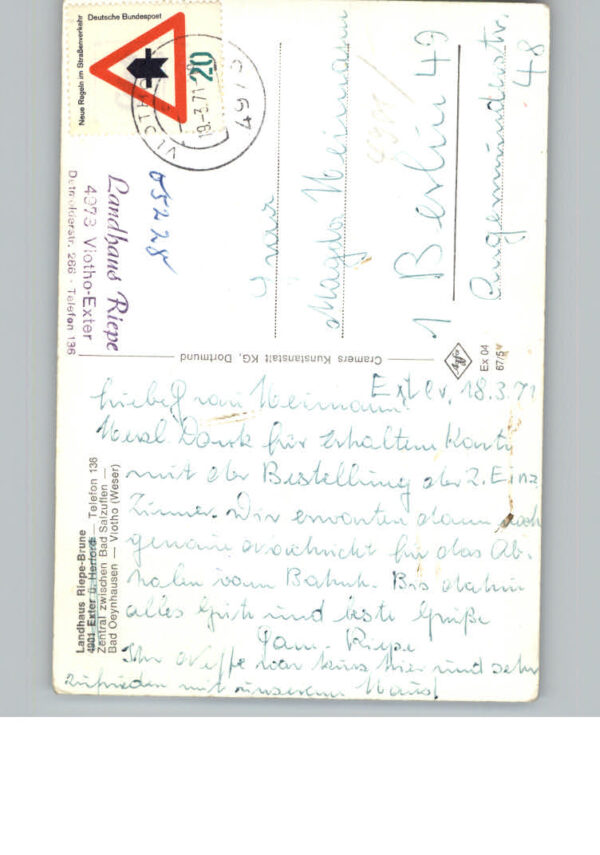 Exter, 18.3.71
Liebe Frau Neimann
Herzl. Dank für erhaltene Karte
mit der Bestellung der 2. Einz.
Zimmer. Wir erwarten dann noch
genaue Nachricht für das Ab-
holen vom Bahnh. Bis dahin
alles Gute und beste Grüße
Fam. Riepe
Ihr Neffe war kurz hier und sehr
zufrieden mit unserem Haus!
Landhaus Riepe-Brune
4901 Exter ü. Herford — Telefon 136
Zentral zwischen Bad Salzuflen —
Bad Oeynhausen — Vlotho (Weser)
Cramers Kunstanstalt KG, Dortmund
Ex 04
67/5
Landhaus Riepe
4973 Vlotho-Exter
Detmolderstr. 266 · Telefon 136
05228
Neue Regeln im Straßenverkehr
Deutsche Bundespost
20
VLOTHO
18.-3.71
4973
Frau
Magda Neimann
1 Berlin 49
Angermünderstr.
48